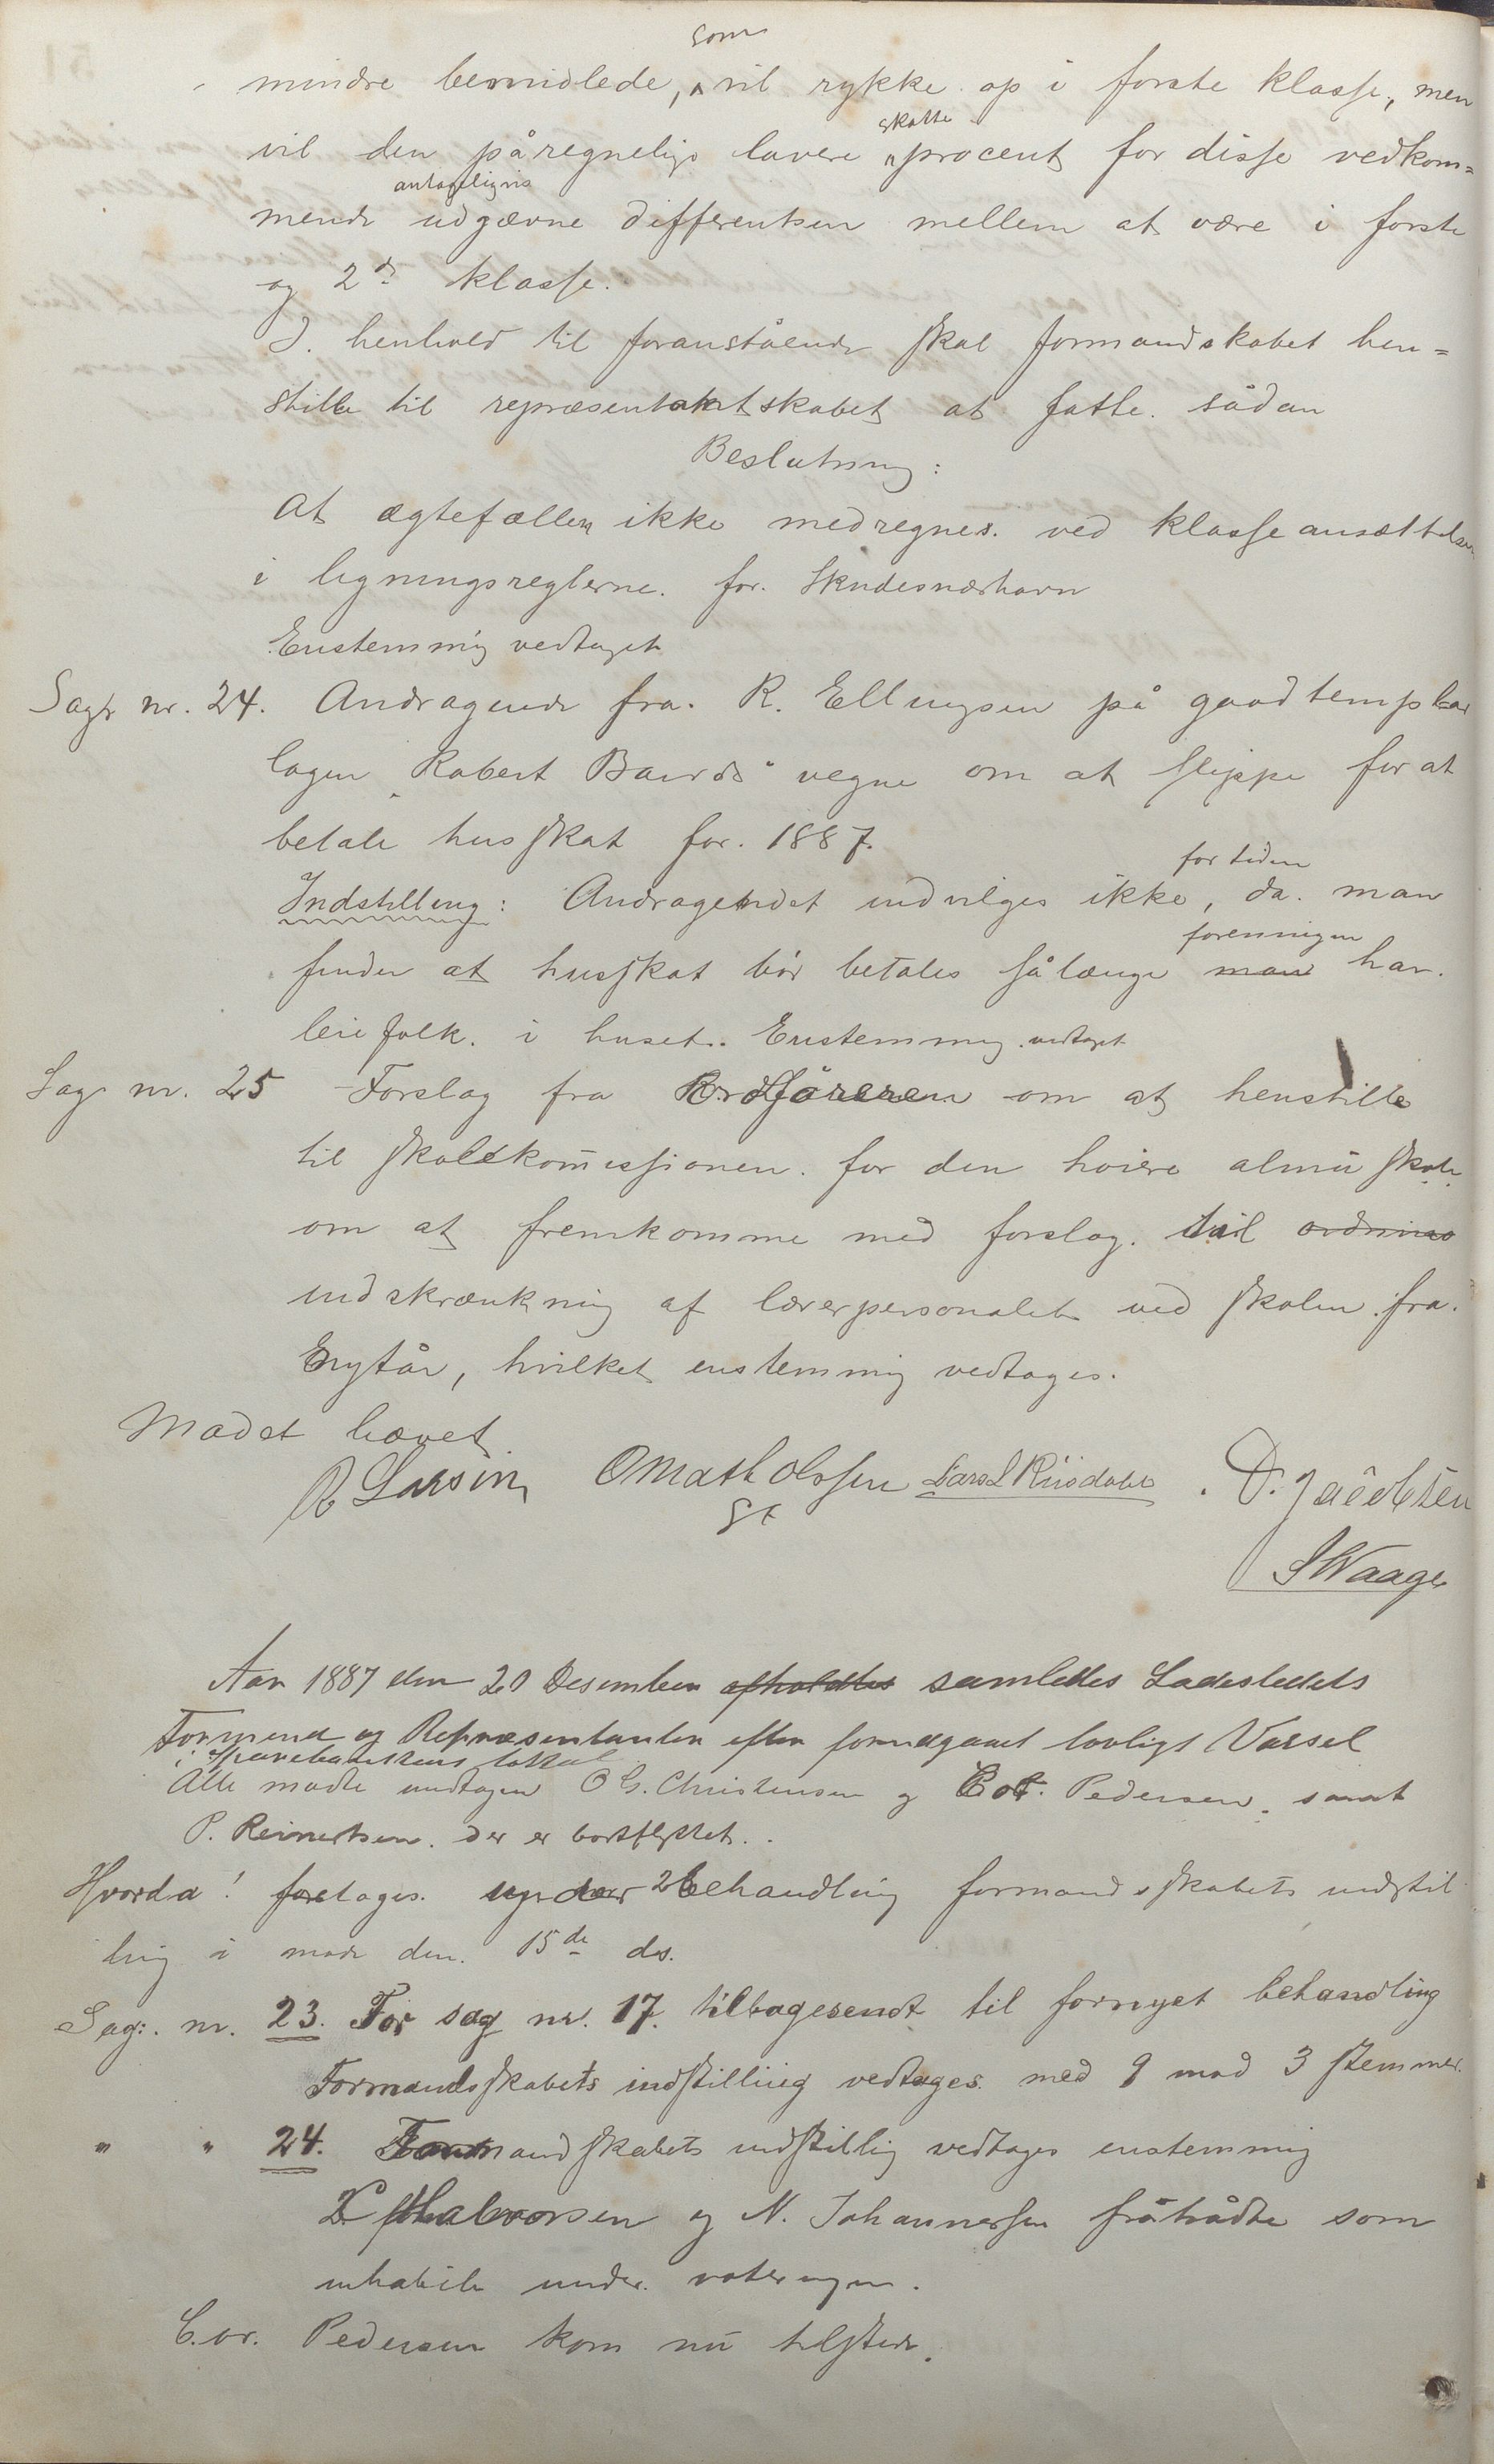 mindre bemidlede, som vil rykke op i første klasse, men
vil den påregnelige lavere skatteprocent for disse vedkom=
mende antageligvis udgævne differentsen mellem at være i første
og 2den klasse.
I henhold til foranstående skal formandskabet hen=
stille til repræsentantskabet at fatte sådan
Beslutning:
At ægtefællen ikke medregnes ved klasseansættelsen
i ligningsreglerne for Skudesneshavn
Enstemmig vedtaget
Sag nr. 24. Andragende fra R. Ellingsen på goodtemplar
logen "Robert Bairds" vegne om at slippe for at
betale husskat for 1887.
Indstilling: Andragendet indvilges ikke for tiden, da man
finder at husskat bør betales sålænge foreningen har
leiefolk i huset. Enstemmig vedtaget
Sag nr. 25 Forslag fra Ordføreren om at henstille
til skolekommissionen for den høiere almueskole
om at fremkomme med forslag til
indskrænkning af lærerpersonalet ved skolen fra
nytår, hvilket enstemmig vedtages.
Mødet hævet
R Larsen O Math Olsen Lars L Riisdahl D. Jacobsen
St
S Waage
Aar 1887 den 20 Desember afholdtes samledes Ladestedets
Formend og Repræsentanter efter forudgaaet lovligt Varsel
i Sparebankens lokal
Alle mødte undtagen O G. Christensen og C or. Pedersen samt
P. Reinertsen der er bortflyttet.
Hvorda! foretages under behandling formandsskabets indstil
ling i møde den 15de ds.
Sag: nr. 23. Før sag nr. 17. tilbagesendt til fornyet behandling
Formandsskabets indstilling vedtages med 9 mod 3 stemmer.
" " 24. Formandskabets indstillig vedtages enstemmig
Halvorsen og N. Johannessen fråtrådte som
inhabile under voteringen.
C. or. Pedersen kom nu tilstede.